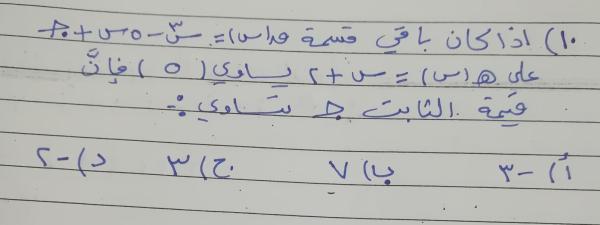 ١٠) اذا كان باقي قسمة م(س) = س³ - ٥س + جـ
على هـ(س) = س + ٢ يساوي (٥) فإنَّ
قيمة الثابت جـ تساوي :-
أ) -٣ ب) ٧ ج) ٣ د) -٢